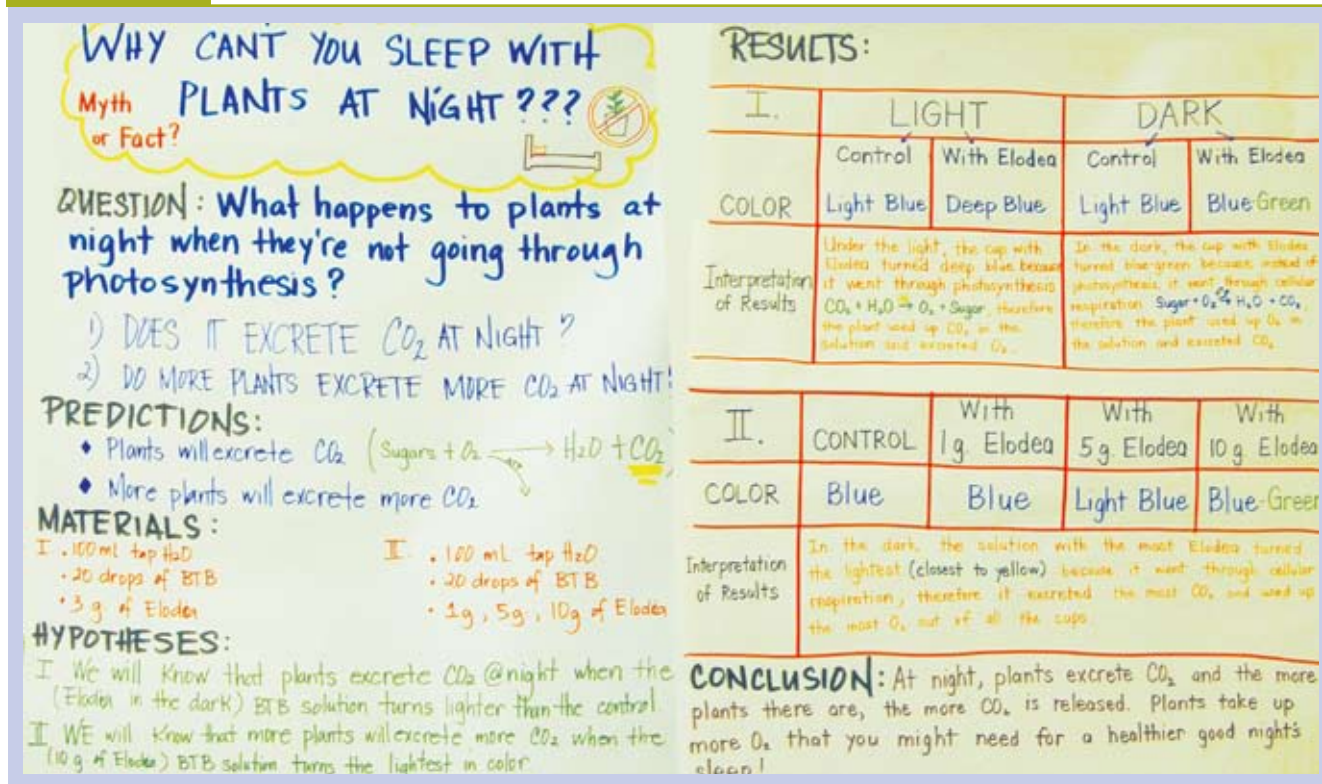 WHY CANT YOU SLEEP WITH
PLANTS AT NiGHT???
Myth
or Fact?
QUESTION: What happens to plants at
night when they're not going through
photosynthesis?
1) DOES IT EXCRETE CO₂ AT NIGHT?
2) DO MORE PLANTS EXCRETE MORE CO₂ AT NIGHT?
PREDICTIONS:
♦ Plants will excrete CO₂ (Sugars + O₂ → H₂O + CO₂)
♦ More plants will excrete more CO₂
MATERIALS:
I . 100 ml tap H₂O
• 20 drops of BTB
• 3 g of Elodea
II . 100 mL tap H₂O
• 20 drops of BTB
• 1g, 5g, 10g of Elodea
HYPOTHESES:
I We will know that plants excrete CO₂ @night when the
(Elodea in the dark) BTB solution turns lighter than the control.
II WE will know that more plants will excrete more CO₂ when the
(10 g of Elodea) BTB solution turns the lightest in color
RESULTS:
I. LIGHT DARK
Control With Elodea Control With Elodea
COLOR Light Blue Deep Blue Light Blue Blue-Green
Interpretation
of Results
Under the light, the cup with
Elodea turned deep blue because
it went through photosynthesis
CO₂ + H₂O → O₂ + Sugar, therefore
the plant used up CO₂ in the
solution and excreted O₂.
In the dark, the cup with Elodea
turned blue-green because instead of
photosynthesis, it went through cellular
respiration Sugar + O₂ → H₂O + CO₂,
therefore the plant used up O₂ in
the solution and excreted CO₂
II. CONTROL With 1g. Elodea With 5g. Elodea With 10 g. Elodea
COLOR Blue Blue Light Blue Blue-Green
Interpretation
of Results
In the dark, the solution with the most Elodea turned
the lightest (closest to yellow) because it went through cellular
respiration, therefore it excreted the most CO₂ and used up
the most O₂ out of all the cups.
CONCLUSION: At night, plants excrete CO₂ and the more
plants there are, the more CO₂ is released. Plants take up
more O₂ that you might need for a healthier good night's
sleep!